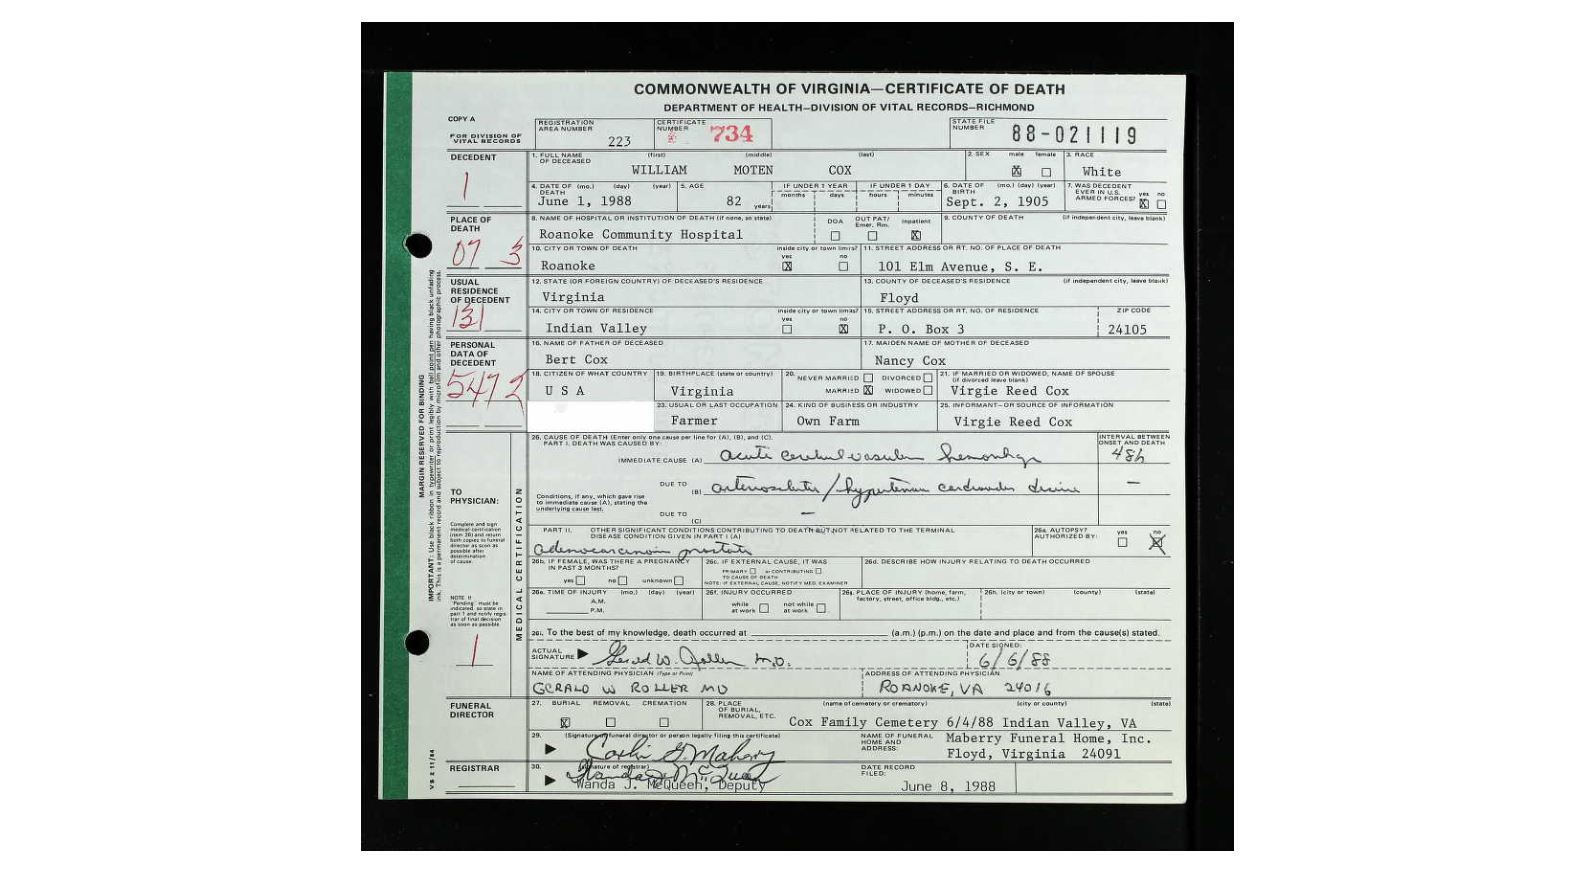 COMMONWEALTH OF VIRGINIA—CERTIFICATE OF DEATH
DEPARTMENT OF HEALTH—DIVISION OF VITAL RECORDS—RICHMOND
COPY A
FOR DIVISION OF VITAL RECORDS
REGISTRATION AREA NUMBER 223
CERTIFICATE NUMBER 734
STATE FILE NUMBER 88-021119
DECEDENT
1
1. FULL NAME OF DECEASED (first) (middle) (last)
WILLIAM MOTEN COX
2. SEX male female
X
3. RACE
White
4. DATE OF DEATH (mo.) (day) (year)
June 1, 1988
5. AGE
82 years
IF UNDER 1 YEAR months days
IF UNDER 1 DAY hours minutes
6. DATE OF BIRTH (mo.) (day) (year)
Sept. 2, 1905
7. WAS DECEDENT EVER IN U.S. ARMED FORCES? yes no
X
PLACE OF DEATH
07 3
8. NAME OF HOSPITAL OR INSTITUTION OF DEATH (if none, so state)
Roanoke Community Hospital
DOA OUT PAT/ Emer. Rm. Inpatient
X
9. COUNTY OF DEATH (if independent city, leave blank)
10. CITY OR TOWN OF DEATH
Roanoke
inside city or town limits? yes no
X
11. STREET ADDRESS OR RT. NO. OF PLACE OF DEATH
101 Elm Avenue, S. E.
USUAL RESIDENCE OF DECEDENT
131
12. STATE (OR FOREIGN COUNTRY) OF DECEASED'S RESIDENCE
Virginia
13. COUNTY OF DECEASED'S RESIDENCE (if independent city, leave blank)
Floyd
14. CITY OR TOWN OF RESIDENCE
Indian Valley
inside city or town limits? yes no
X
15. STREET ADDRESS OR RT. NO. OF RESIDENCE
P. O. Box 3
ZIP CODE
24105
PERSONAL DATA OF DECEDENT
5472
16. NAME OF FATHER OF DECEASED
Bert Cox
17. MAIDEN NAME OF MOTHER OF DECEASED
Nancy Cox
18. CITIZEN OF WHAT COUNTRY
U S A
19. BIRTHPLACE (state or country)
Virginia
20. NEVER MARRIED DIVORCED
MARRIED X WIDOWED
21. IF MARRIED OR WIDOWED, NAME OF SPOUSE (if divorced leave blank)
Virgie Reed Cox
23. USUAL OR LAST OCCUPATION
Farmer
24. KIND OF BUSINESS OR INDUSTRY
Own Farm
25. INFORMANT—OR SOURCE OF INFORMATION
Virgie Reed Cox
MARGIN RESERVED FOR BINDING
MEDICAL CERTIFICATION
TO PHYSICIAN:
Complete and sign medical certification (item 26) and return both copies to funeral director as soon as possible after determination of cause.
NOTE: If "Pending" must be indicated, so state in part 1 and notify registrar of final decision as soon as possible.
1
26. CAUSE OF DEATH (Enter only one cause per line for (A), (B), and (C).
PART I. DEATH WAS CAUSED BY:
INTERVAL BETWEEN ONSET AND DEATH
IMMEDIATE CAUSE (A) acute cerebrovascular hemorrhage 48h
DUE TO (B) arteriosclerotic/hypertensive cardiovascular disease —
Conditions, if any, which gave rise to immediate cause (A), stating the underlying cause last.
DUE TO (C) —
PART II. OTHER SIGNIFICANT CONDITIONS CONTRIBUTING TO DEATH BUT NOT RELATED TO THE TERMINAL DISEASE CONDITION GIVEN IN PART I (A)
adenocarcinoma prostate
26a. AUTOPSY? AUTHORIZED BY: yes no
X
26b. IF FEMALE, WAS THERE A PREGNANCY IN PAST 3 MONTHS?
yes no unknown
26c. IF EXTERNAL CAUSE, IT WAS
PRIMARY or CONTRIBUTING
TO CAUSE OF DEATH
NOTE: IF EXTERNAL CAUSE, NOTIFY MED. EXAMINER
26d. DESCRIBE HOW INJURY RELATING TO DEATH OCCURRED
26e. TIME OF INJURY (mo.) (day) (year)
A.M.
P.M.
26f. INJURY OCCURRED
while at work not while at work
26g. PLACE OF INJURY (home, farm, factory, street, office bldg., etc.)
26h. (city or town) (county) (state)
26i. To the best of my knowledge, death occurred at (a.m.) (p.m.) on the date and place and from the cause(s) stated.
ACTUAL SIGNATURE Gerald W. Roller M.D.
DATE SIGNED: 6/6/88
NAME OF ATTENDING PHYSICIAN (Type or Print)
GERALD W ROLLER MD
ADDRESS OF ATTENDING PHYSICIAN
ROANOKE, VA 24016
FUNERAL DIRECTOR
27. BURIAL REMOVAL CREMATION
X
28. PLACE OF BURIAL, REMOVAL, ETC. (name of cemetery or crematory) (city or county) (state)
Cox Family Cemetery 6/4/88 Indian Valley, VA
29. (Signature of funeral director or person legally filing this certificate)
NAME OF FUNERAL HOME AND ADDRESS:
Maberry Funeral Home, Inc.
Floyd, Virginia 24091
REGISTRAR
30. (signature of registrar)
Wanda J. McQueen
Wanda J. McQueen, Deputy
DATE RECORD FILED:
June 8, 1988
VS 2 11/84